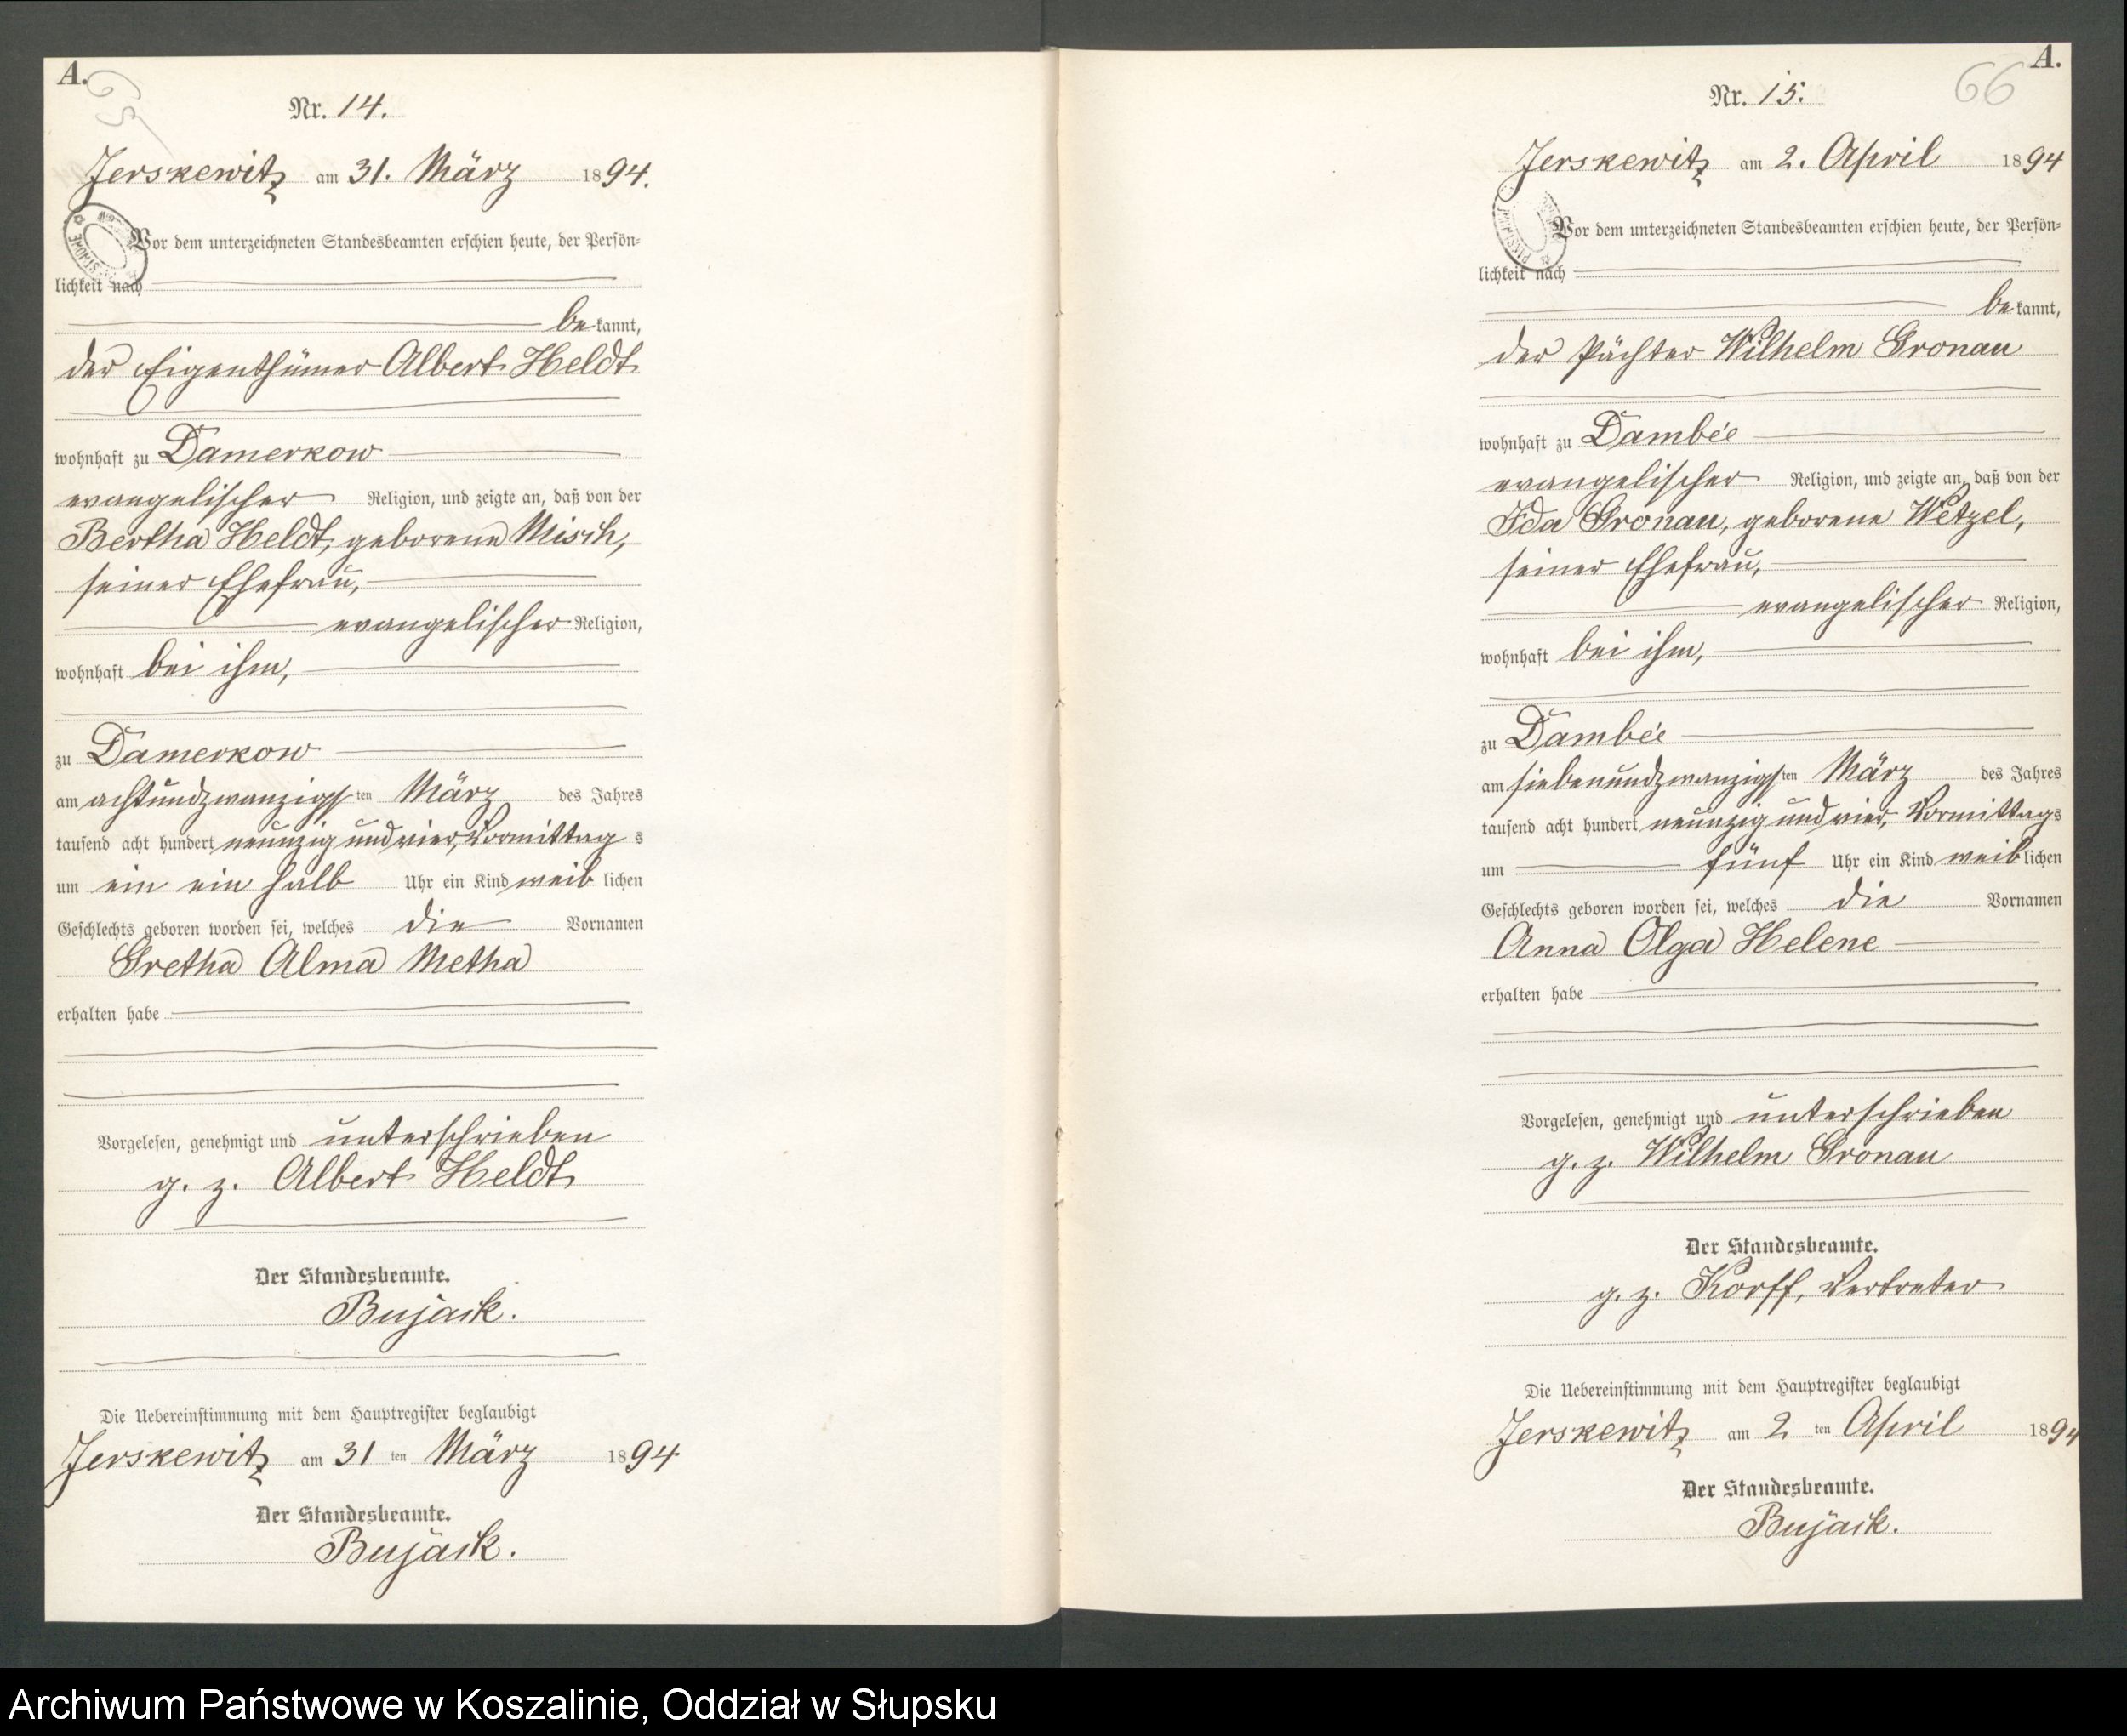 A.
65
Nr. 14.
Jerskewitz am 31. März 1894.
Vor dem unterzeichneten Standesbeamten erschien heute, der Persön-
lichkeit nach
be kannt,
der Eigenthümer Albert Heldt
wohnhaft zu Damerkow
evangelischer Religion, und zeigte an, daß von der
Bertha Heldt, geborene Misch,
seiner Ehefrau,
evangelischer Religion,
wohnhaft bei ihm,
zu Damerkow
am achtundzwanzigsten März des Jahres
tausend acht hundert neunzig und vier, Vormittags
um ein ein halb Uhr ein Kind weiblichen
Geschlechts geboren worden sei, welches die Vornamen
Gretha Alma Metha
erhalten habe
Vorgelesen, genehmigt und unterschrieben
g. z. Albert Heldt
Der Standesbeamte.
Bujack.
Die Uebereinstimmung mit dem Hauptregister beglaubigt
Jerskewitz am 31 ten März 1894
Der Standesbeamte.
Bujack.
A.
66
Nr. 15.
Jerskewitz am 2. April 1894
Vor dem unterzeichneten Standesbeamten erschien heute, der Persön-
lichkeit nach
be kannt,
der Pächter Wilhelm Gronau
wohnhaft zu Dambée
evangelischer Religion, und zeigte an, daß von der
Ida Gronau, geborene Wetzel,
seiner Ehefrau,
evangelischer Religion,
wohnhaft bei ihm,
zu Dambée
am siebenundzwanzigsten März des Jahres
tausend acht hundert neunzig und vier, Vormittags
um fünf Uhr ein Kind weiblichen
Geschlechts geboren worden sei, welches die Vornamen
Anna Olga Helene
erhalten habe
Vorgelesen, genehmigt und unterschrieben
g. z. Wilhelm Gronau
Der Standesbeamte.
g. z. Korff, Vertreter
Die Uebereinstimmung mit dem Hauptregister beglaubigt
Jerskewitz am 2 ten April 1894
Der Standesbeamte.
Bujack.
Archiwum Państwowe w Koszalinie, Oddział w Słupsku